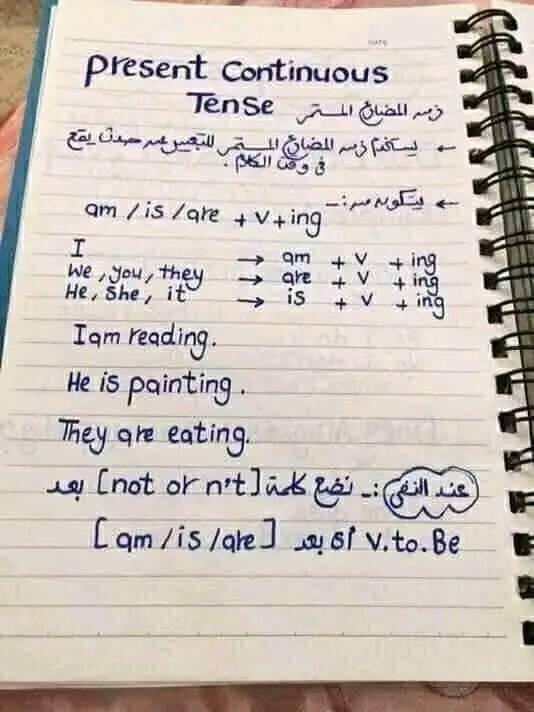 DATE
Present Continuous
Tense زمن المضارع المستمر
← يستخدم زمن المضارع المستمر للتعبير عن حدث يقع
في وقت الكلام.
← يتكون من :-
am / is / are + v + ing
I → am + v + ing
We, you, they → are + v + ing
He, She, it → is + v + ing
I am reading.
He is painting.
They are eating.
عند النفي :- نضع كلمة [not or n't] بعد
[am / is / are] أى بعد V. to. Be